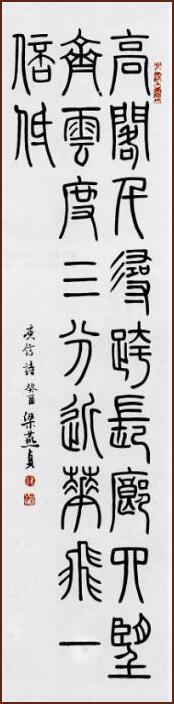 高閣千尋跨長廊四望
齊雲度三分近華飛一
倍低
庾信詩 癸酉 梁燕貞